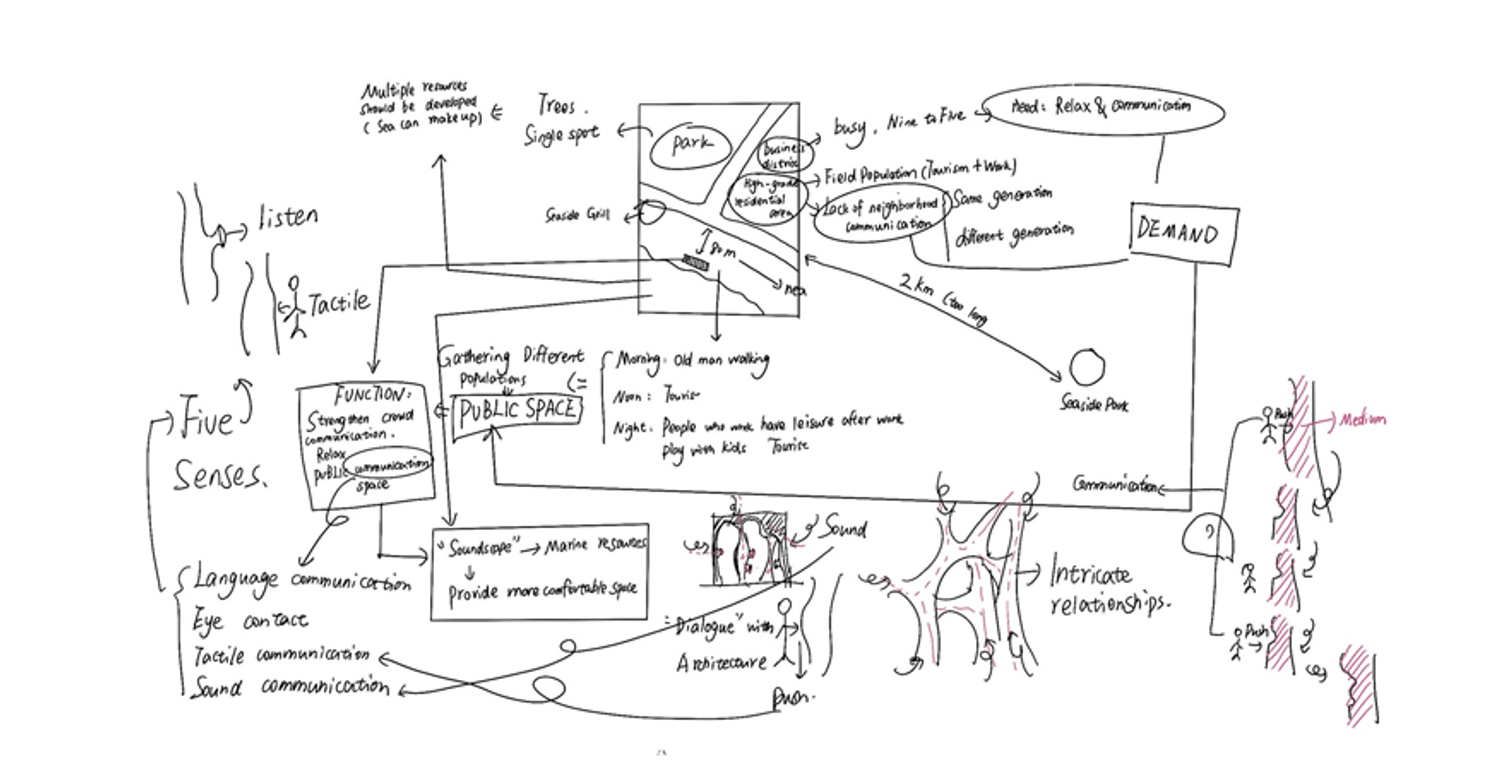 Multiple resources
should be developed
( Sea can make up)
Trees.
Single spot
Park
business
district
busy, Nine to Five
Need: Relax & communication
High-grade
residential
area
Field Population (Tourism + Work)
Lack of neighborhood
communication
Same generation
different generation
DEMAND
Seaside Grill
80m
near
2 km (too long
Seaside Park
listen
Tactile
Five
Senses.
FUNCTION:
Strengthen crowd
communication.
Relax
PUBLIC communication
space
Gathering Different
Populations
PUBLIC SPACE
Morning: Old man walking
Noon: Touris
Night. People who work have leisure after work
play with kids Tourise
"Soundscape" → Marine resources
Provide more comfortable space
Language communication
Eye contact
Tactile communication
Sound communication
Sound
"Dialogue" with
Architecture
push.
Intricate
relationships.
Communication
?
Push
Medium
Push